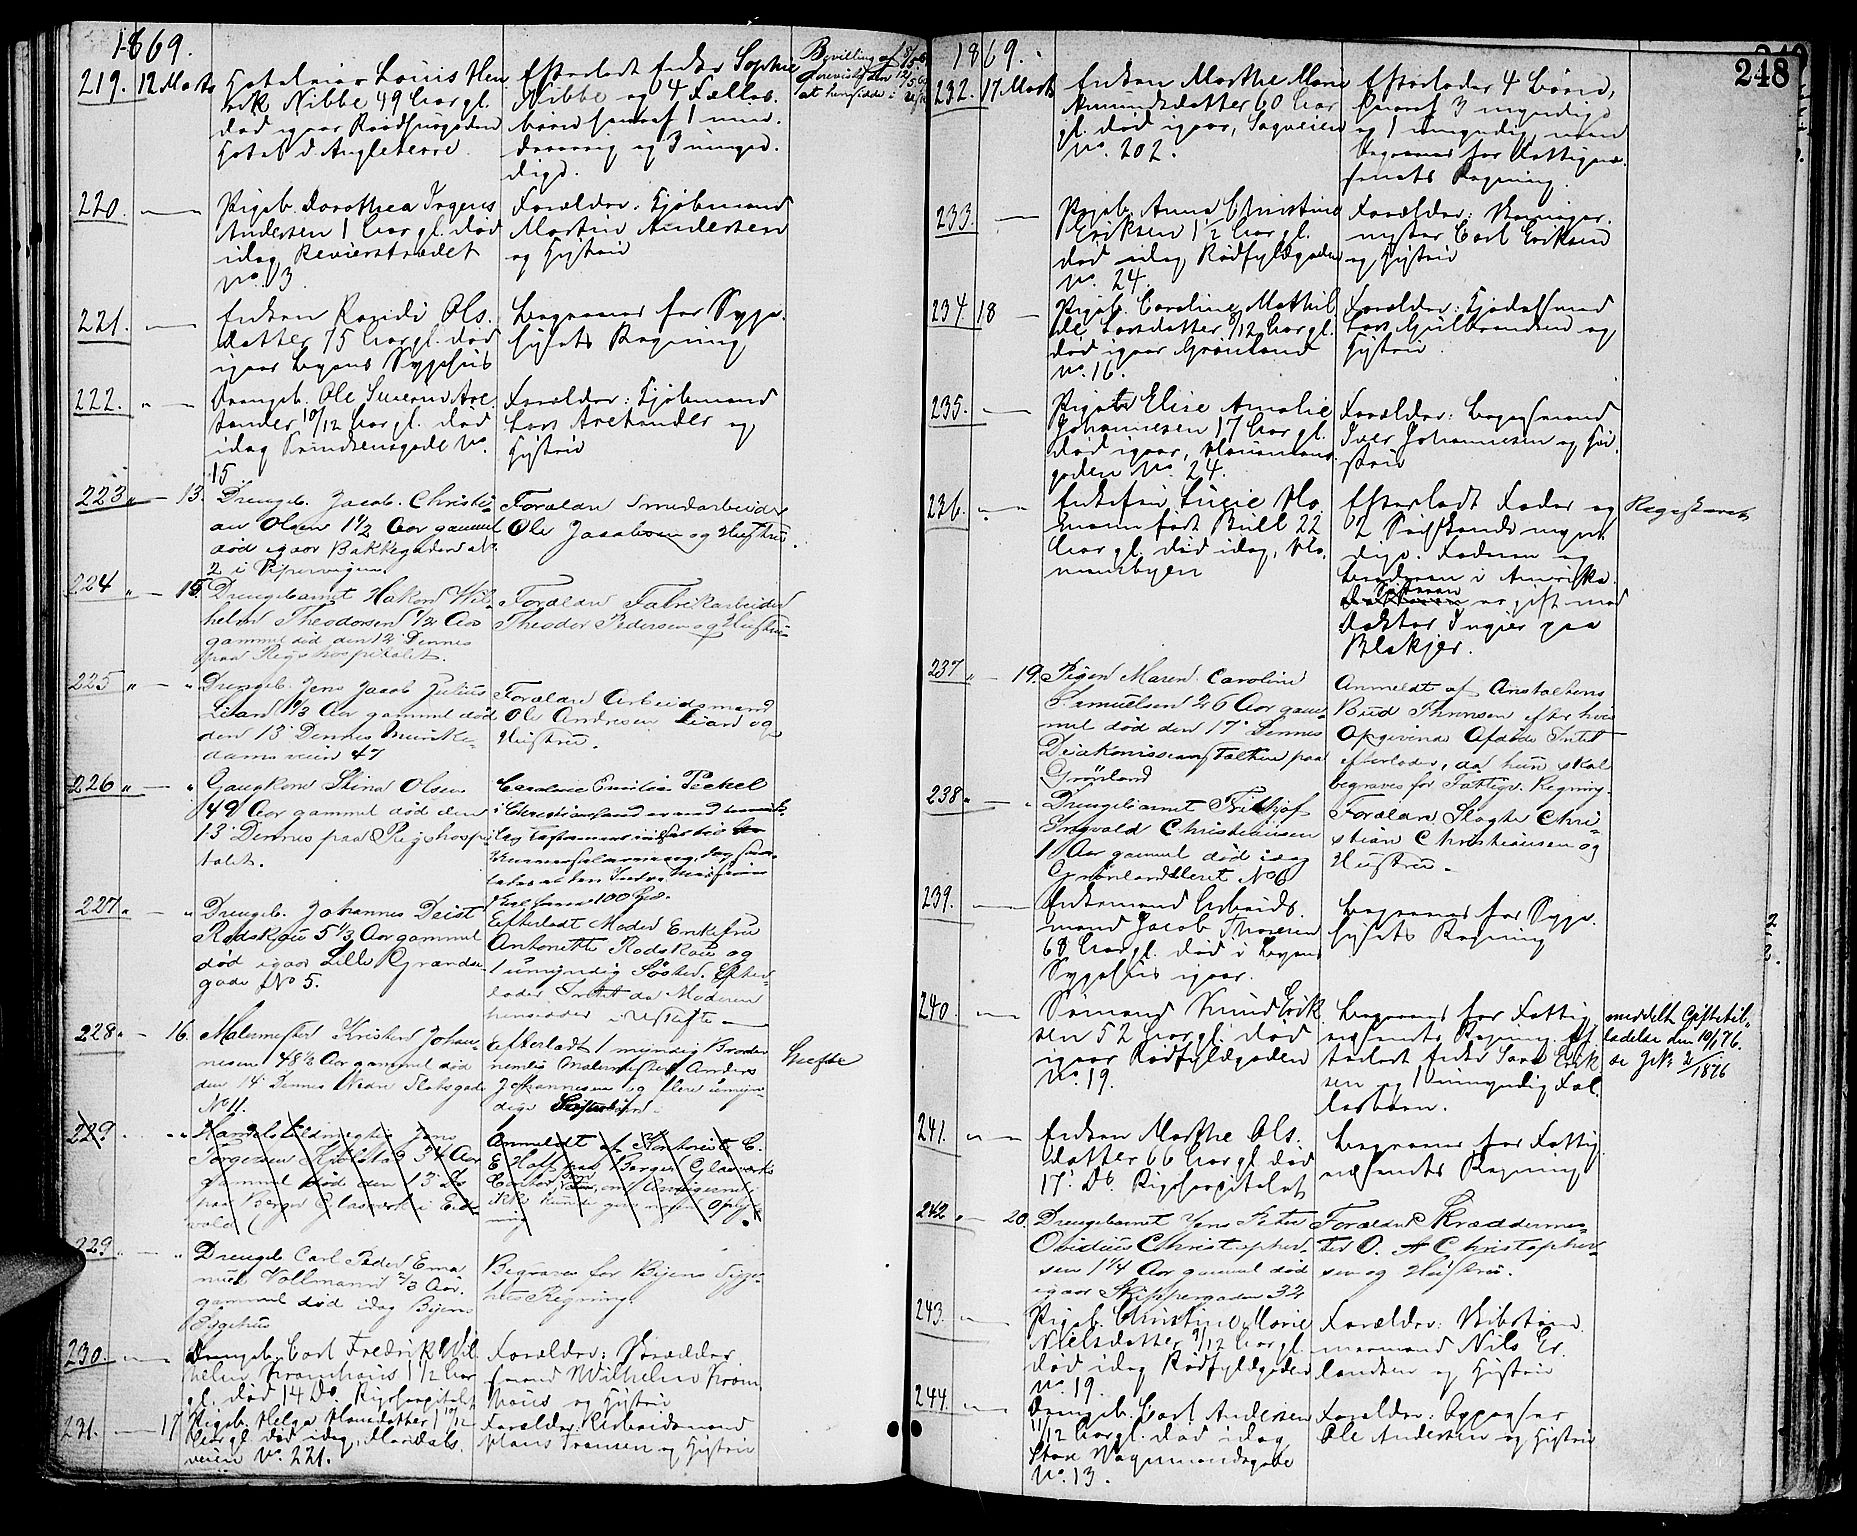 1869.
219. 12 Marts Hoteleier Louis Hen
rik Nibbe 49 Aar gl.
død igaar Raadhusgaden
Hotel d'Angleterre.
Efterladt Enke Sophie
Nibbe og 4 Fælles
børn hvoraf 1 min
dreaarig og 3 umyn
dige.
Bevilling af
at hensidde i
220. Pigeb. Dorothea Ingens
Andersen 1 Aar gl. død
idag Revierstrædet
No. 13
Forældre: Kjøbmand
Martin Andersen
og Hustru
221. Enken Randi Ols
datter 75 Aar gl. død
igaar Byens Sygehus
Begraves for Syge
husets Regning
222. Drengeb. Ole Severin Are
tander 10/12 Aar gl. død
idag Trondsensgade No.
15
Forældre: Kjøbmand
Lars Aretander og
Hustru
223 13. Drengeb. Jacob Christi
an Olsen 1 1/2 Aar gammel
død igaar Bakkegaden No.
2 i Pipervigen
Forældre Smedarbeider
Ole Jacobsen og Hustru.
224 15 Drengebarnet Hakon Wil-
helm Theodorsen 1/2 Aar
gammel død den 12 Dennes
paa Rigshospitalet.
Forældre Fabrikarbeider
Theodor Pedersen og Hustru
225 Drengeb. Jens Jacob Julius
Liard 1/3 Aar gammel død
den 13 Dennes Munke-
damsveien 47
Forældre Arbeidsmand
Ole Andresen Liard og
Hustru.
226 Gaukone Stina Olsen
49 Aar gammel død den
13 Dennes paa Rigshospi
talet.
Caroline Emilie Peckel
i Christiansand
100 Spd.
227 Drengeb. Johannes Deist
Rodskou 5 1/3 Aar gammel
død igaar Lille Grændse
gade No 5.
Efterladt Moder Enkefru
Antonette Rodskou og
1 umyndig Søster. Efter
lader Intet da Moderen
hensidder i Uskifte
228 16. Malermester Kristen Johan-
nesen 48 1/2 Aar gammel død
den 14 Dennes Nedre Slotsgade
No 11.
Efterladt 1 myndig Broder
nemlig Malermester Anders
Johannesen og flere umyn-
dige Søsterbørn.
Skifte
229 Handelsfuldmægtig Jens
Jørgensen Hjølstad 34 Aar
gammel død den 13 ds
paa Berger Glasværk i Eids
vold
Anmeldt af Kontorist E.
E. Hoff paa Berger Glasværks
Contor
ikke kunde give nogen Oplys
ning
229 Drengeb. Carl Peder Ema
nuel Vollmann 2/3 Aar
gammel død idag Byens
Sygehus
Begraves for Byens Syge-
hus Regning.
230. Drengeb. Carl Fredrik Wil
helm Kramhaus 1 1/2 Aar
gl. død 14 Ds Rigshospitalet
Forældre: Skrædder
svend Wilhelm Kram
haus og Hustru
231. 17 Pigeb. Helga Hansdatter 1 10/12
Aar gl. død idag, Maridals
veien No. 221.
Forældre: Arbeidsmand
Hans Fransen og Hustru
1869.
248
232. 17 Marts Enken Marthe Marie
Amundsdatter 60 Aar
gl. død igaar, Sagveien
No. 202.
Efterlader 4 Børn,
hvoraf 3 myndige
og 1 umyndig, men
begraves for Fattigvæ
senets Regning.
233. Pigeb. Anna Christine
Eriksen 1 1/2 Aar gl.
død idag Rødfyldgaden
No. 24.
Forældre:
mester Carl Eriksen
og Hustru
234 18 Pigeb. Caroline Mathil
de Larsdatter 8/12 Aar gl.
død igaar Grønland
No. 16.
Forældre:
Lars Gulbrandsen og
Hustru.
235. Pigeb. Elise Amalie
Johannesen 17 Aar gl.
død igaar,
gaden No 24.
Forældre: Bogholder
Iver Johannesen og Hu
stru
236. Enkefru Lucie Ho
mann født Bull 22
Aar gl. død idag, Ho
mansbyen
Efterladt Fader og
2 Sødskende myn
dige. Faderen og
Broderen i Amerika.
Søsteren er gift med
Doktor Ingier paa
Blakjer.
Registreret
237 19. Pigen Maren Caroline
Samuelsen 26 Aar gam-
mel død den 17 Dennes
Deiakonisseanstalten paa
Grønland
Anmeldt af Anstaltens
Bud Thronsen efter hvis
Opgivende Afdøde Intet
efterlader, da hun skal
begraves for Fattigv. Regning.
238 Drengebarnet Frithjof
Ingvald Christiansen
1 Aar gammel død idag
Grønlandsleret No 6
Forældre Slagter Chri-
stian Christiansen og
Hustru.
239. Enkemand Arbeids
mand Jacob Thoresen
68 Aar gl. død i Byens
Sygehus igaar.
Begraves for Syge
husets Regning
240. Sømand Knud Erik
sen 52 Aar gl. død
igaar Rødfyldgaden
No. 19.
Begraves for Fattig
væsenets Regning. Ef
terladt Enke Sara Erik
sen og 1 umyndig Fæl
lesbarn.
meddelt Giftetil-
ladelse den 10/1 76.
se J.No. 2/1876
241. Enken Marthe Ols
datter 66 Aar gl. død
17 Ds. Rigshospitalet
Begraves for Fattig
væsenets Regning
242 20. Drengebarnet Jens Peter
Ovidius Christopher-
sen 1 1/4 Aar gammel død
igaar Skippergaden 32
Forældre Skræddermes-
ter O. A Christopher-
sen og Hustru.
243. Pigeb. Christine Marie
Nielsdatter 9/12 Aar gl.
død idag Rødfyldgaden
No. 19.
Forældre:
mermand Nils Er
landsen og Hustru
244. Drengeb. Carl Andersen
11/12 Aar gl. død idag
Store Vognmandsgade
No. 13.
Forældre: Oppasser
Ole Andersen og Hustru